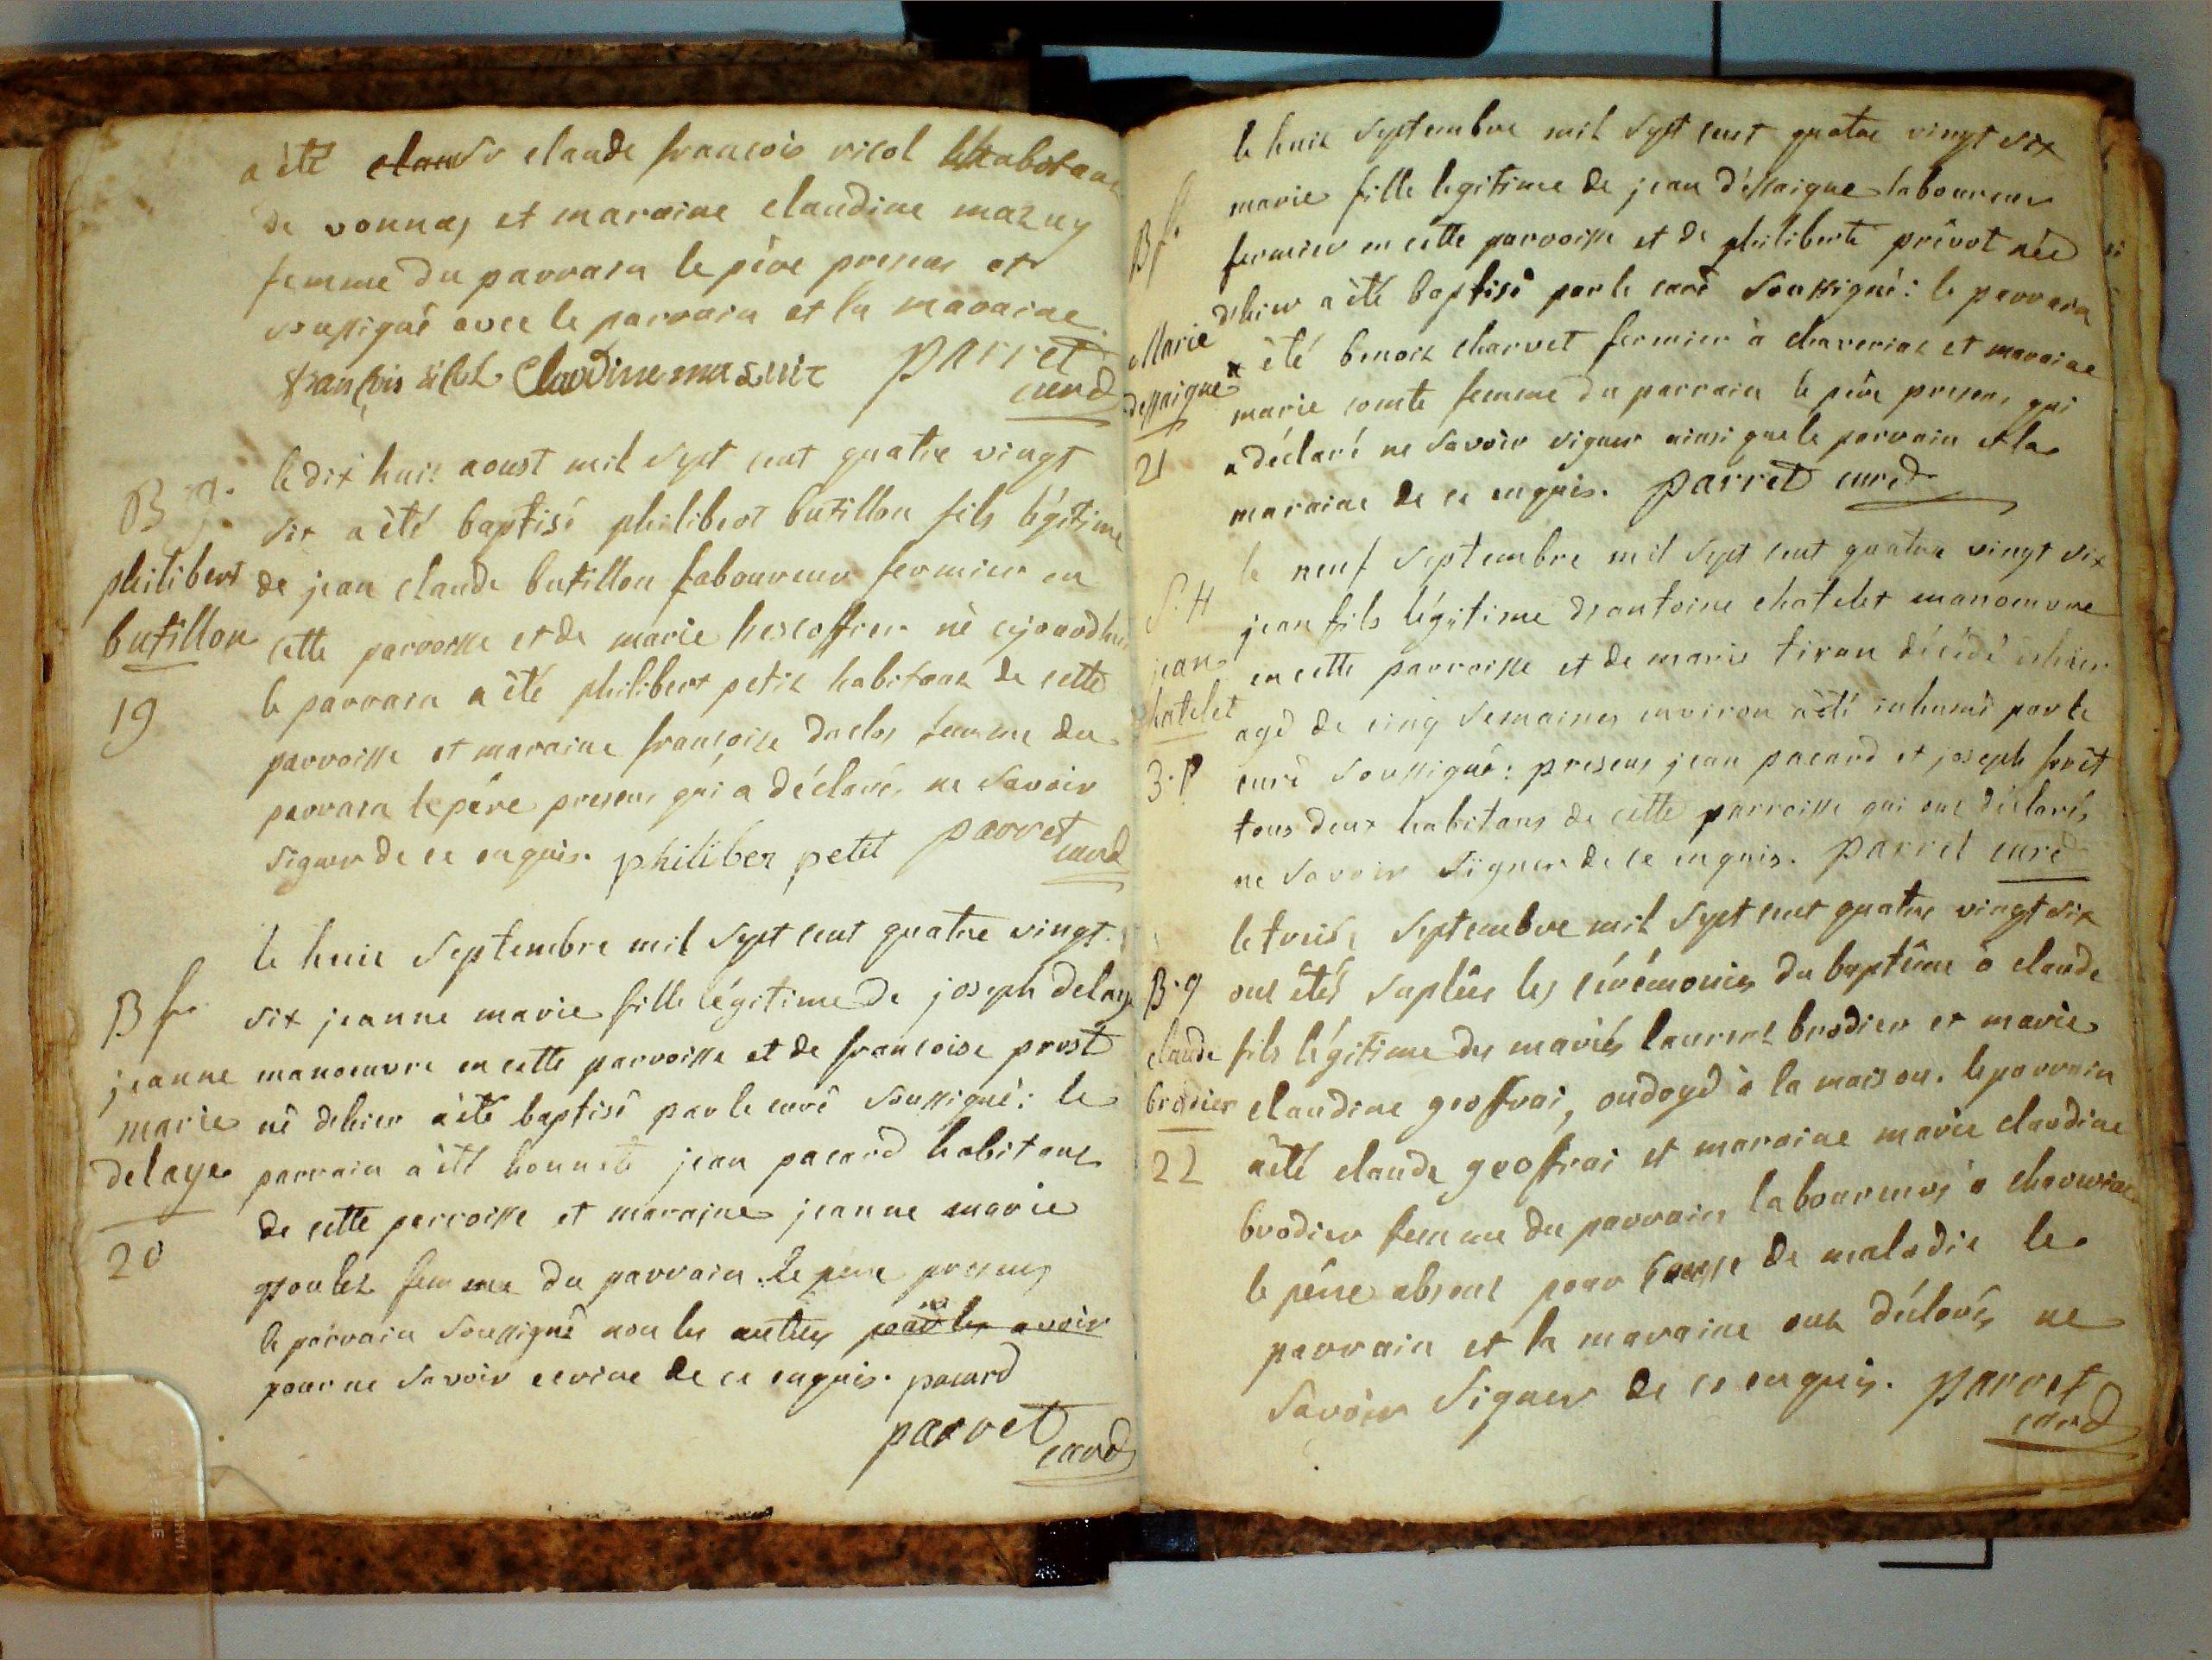 a été claude françois vicol habitant
de vonnas et maraine claudine mazuy
femme du parrain le père present et
soussigné avec le parrain et la maraine.
françois Claudine masuit parret
curé
B g.
philibert
butillon
19
le dix huit aoust mil sept cent quatre vingt
six a été baptisé philibert butillon fils légitime
de jean claude butillon laboureur fermier en
cette parroisse et de marie hescoffier né ajourdhui
le parrain a été philibert petit habitant de cette
parroisse et maraine françoise duclos femme du
parrain le père present qui a déclaré ne savoir
signer de ce enquis. philiber petit parret
curé
B f.
jeanne
marie
delaye
20
le huit septembre mil sept cent quatre vingt
six jeanne marie fille légitime de joseph delaye
manoeuvre en cette parroisse et de françoise prost
né dehier a été baptisé par le curé soussigné: le
parrain a été honnete jean pacard habitant
de cette parroisse et maraine jeanne marie
femme du parrain le père present
le parrain soussigné non les autres par les avoir
pour ne savoir ecrire de ce enquis. pacard
parret
curé
B f.
Marie
dessaigne
21
le huit septembre mil sept cent quatre vingt six
marie fille legitime de jean dessaigne laboureur
fermier en cette parroisse et de philiberte prévot née
d'hier a été baptisé par le curé soussigné: le parrain
a été benoit charvet fermier à chaveriat et maraine
marie comte femme du parrain le père present qui
a déclaré ne savoir signer ainsi que le parrain et la
maraine de ce enquis. parret curé
S. H
jean
chatelet
3. P
le neuf septembre mil sept cent quatre vingt six
jean fils légitime d'antoine chatelet manoeuvre
en cette parroisse et de marie tiran décédé d'hier
agé de cinq semaines environ a été inhumé par le
curé soussigné: presens jean pacard et joseph forêt
tous deux habitans de cette parroisse qui ont déclarés
ne savoir signer de ce enquis. parret curé
B. g
claude
brodier
22
le treize septembre mil sept cent quatre vingt six
ont étés suplées les cérémonies du baptême à claude
fils légitime des mariés laurent brodier et marie
claudine geoffrai, ondoyé à la maison. le parrain
a été claude geoffrai et maraine marie claudine
brodier femme du parrain laboureurs à chaveriat
le père absent pour cause de maladie le
parrain et la maraine ont déclarés ne
savoir signer de ce enquis. parret
curé